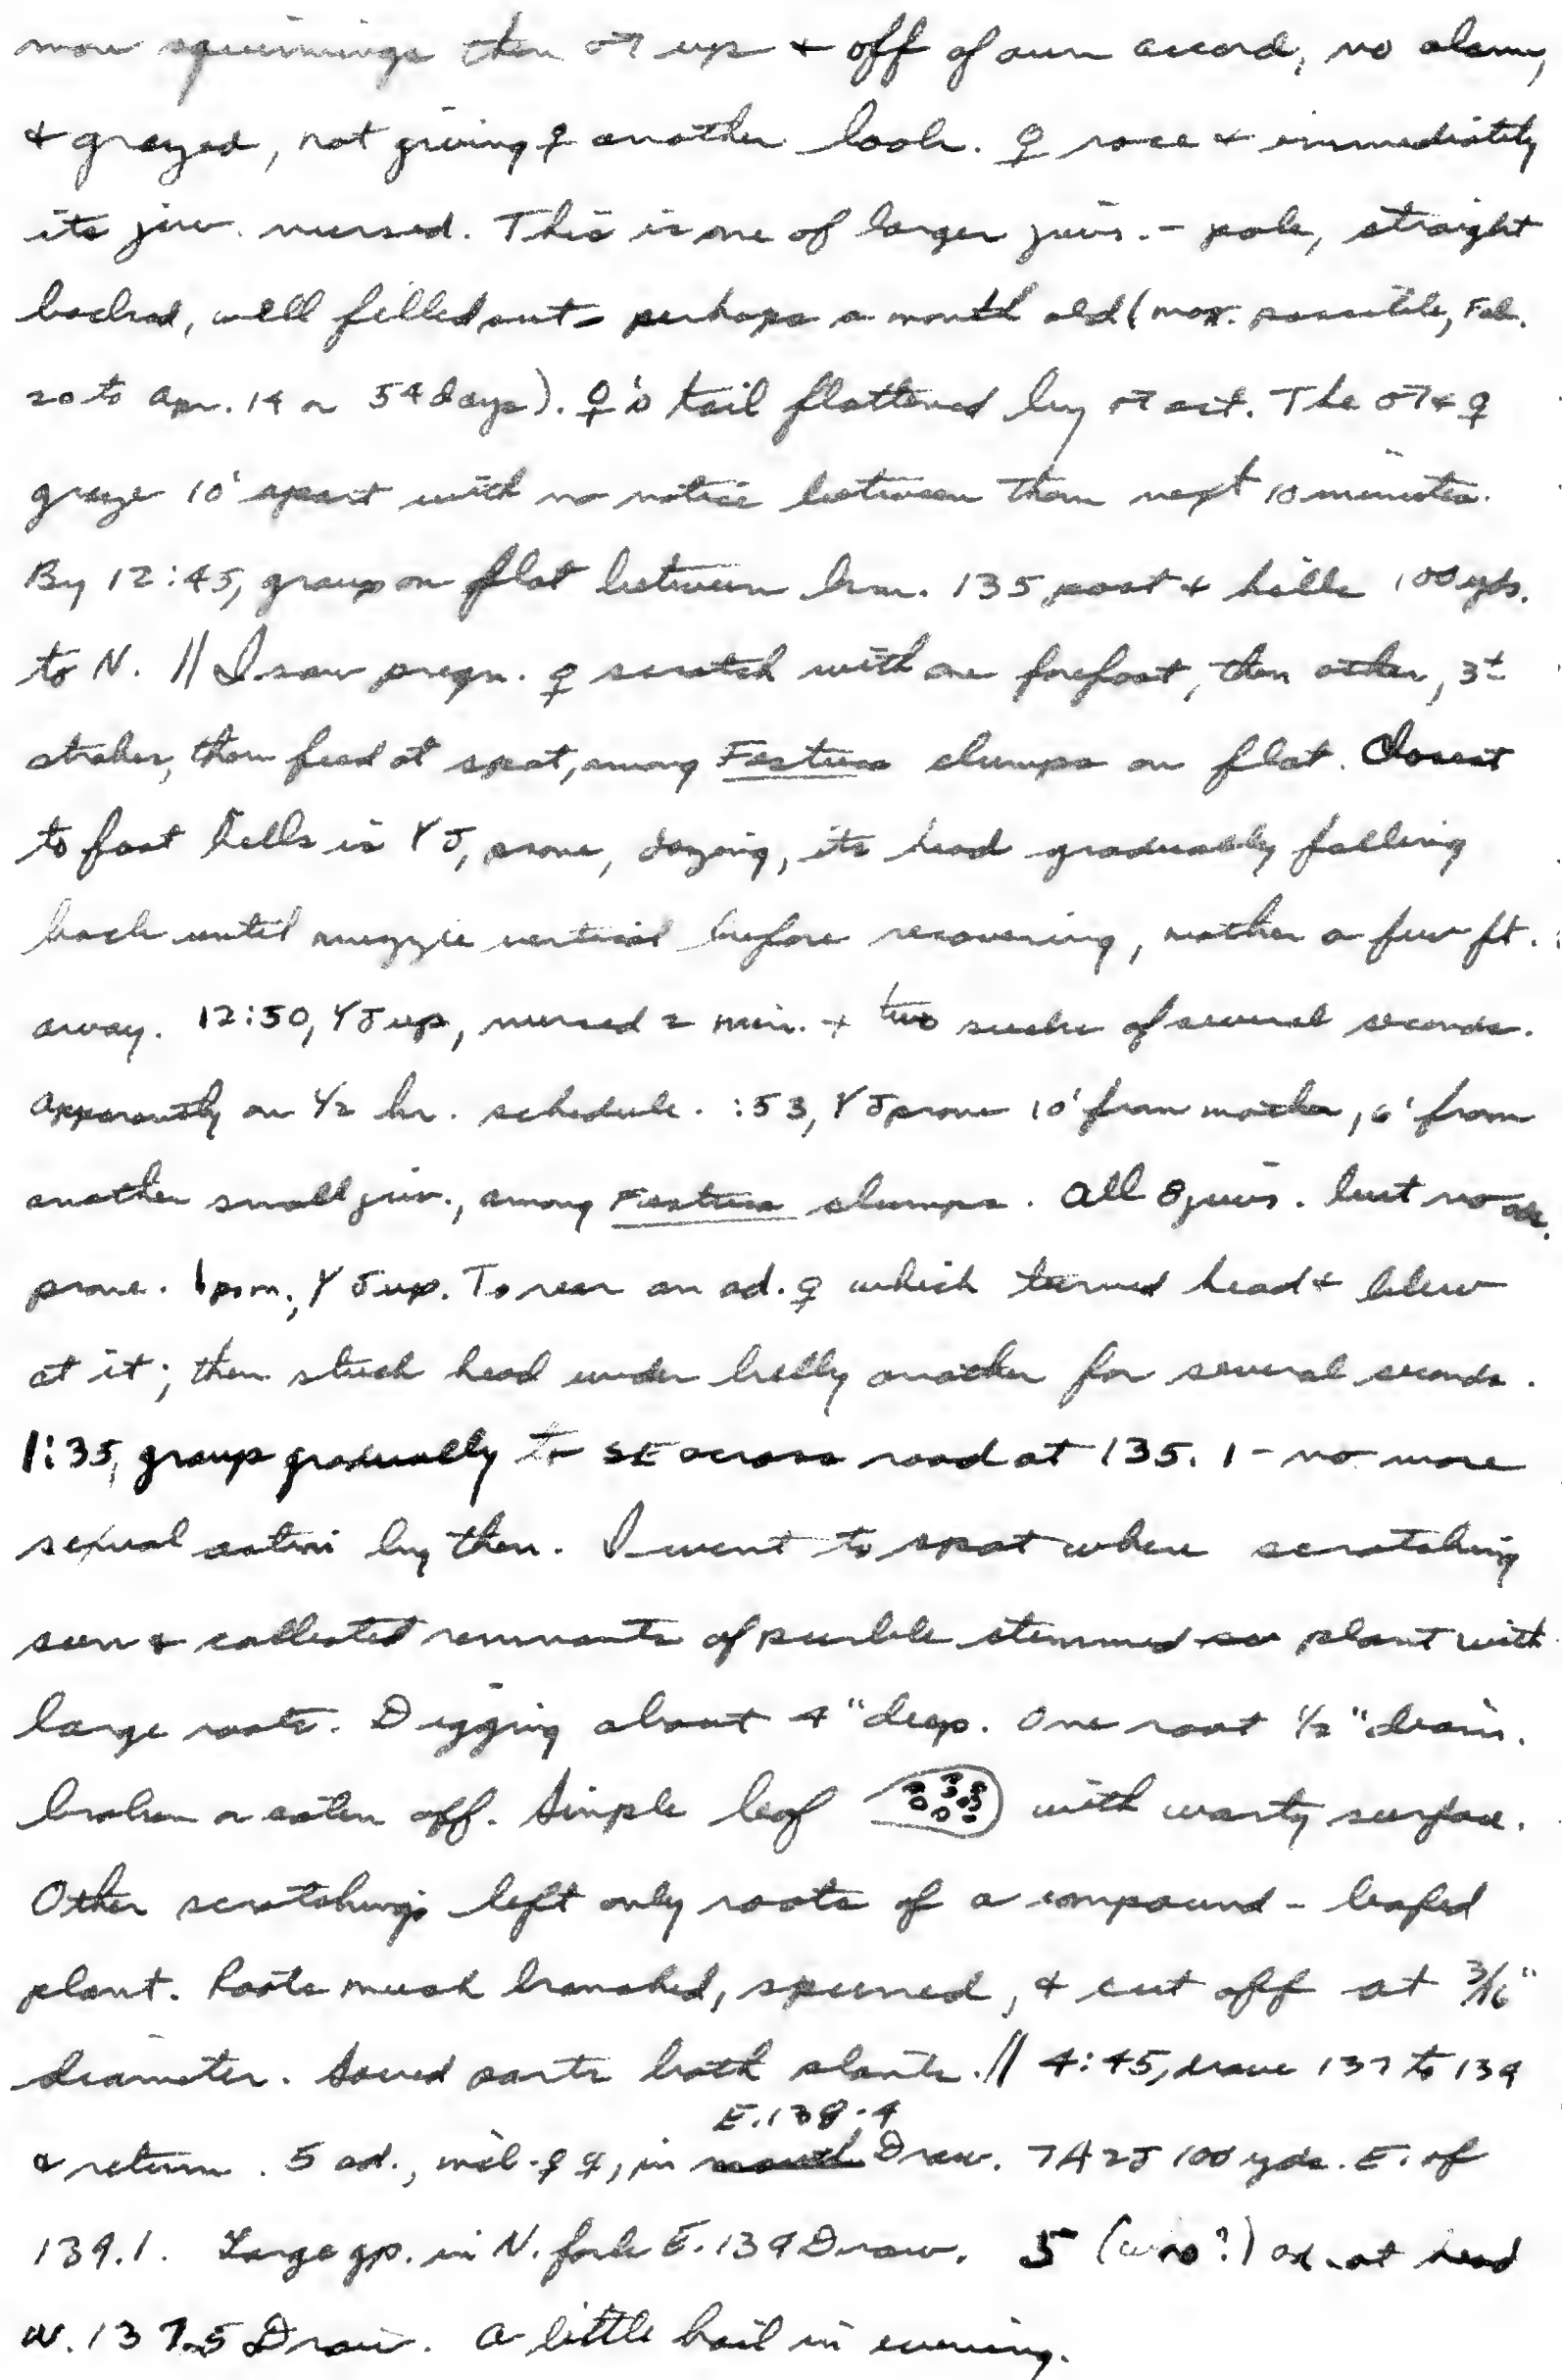 more squirmings then ♂ up & off of own accord, no alarm,
& grazed, not giving ♀ another look. ♀ rose & immediately
its juv. nursed. This is one of larger juvs. - pale, straight
backed, well filled out - perhaps a month old (max. possible, Feb.
20 to Apr. 14 or 54 days). ♀'s tail flattened by ♂ act. The ♂ & ♀
graze 10' apart with no notice between them next 10 minutes.
By 12:45, group on flat between km. 135 post & hills 100 yds.
to N. // I saw pregn. ♀ scratch with one forefoot, then other, 3±
strokes, then feed at spot, among Festuca clumps on flat. Closest
to foot hills is YJ, prone, dozing, its head gradually falling
back until muzzle vertical before recovering, mother a few ft.
away. 12:50, YJ up, nursed 2 min. + two sucks of several seconds.
Apparently on 1/2 hr. schedule. :53, YJ prone 10' from mother, 6' from
another small juv., among Festuca clumps. All 8 juvs. but no ad.
prone. 1 p.m., YJ up. To rear an ad. ♀ which turned head & blew
at it; then stuck head under belly another for several seconds.
1:35, group gradually to SE across road at 135.1 - no more
sexual activ by then. I went to spot where scratching
seen & collected remnants of purple stemmed plant with
large roots. Digging about 4" deep. One root 1/2" diam.
broken or eaten off. Simple leaf with warty surface.
Other scratchings left only roots of a compound-leafed
plant. Roots much branched, & cut off at 3/16"
diameter. Saved parts both plants. // 4:45, drove 137 to 139
E. 138.4
& return. 5 ad., incl. ♀♀, in Draw. 7A 2J 100 yds. E. of
139.1. Large gp. in N. fork E. 139 Draw. 5 ( ?) ad. at head
W. 137.5 Draw. A little hail in evening.